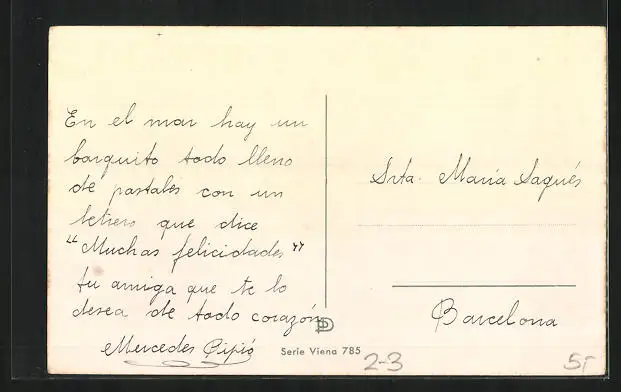 En el mar hay un
barquito todo lleno
de pastales con un
letiero que dice
"Muchas felicidades"
tu amiga que te lo
desea de todo corazón
Mercedes Pipió
Srta. María Sagués
Barcelona
Serie Viena 785
2-3
5,-